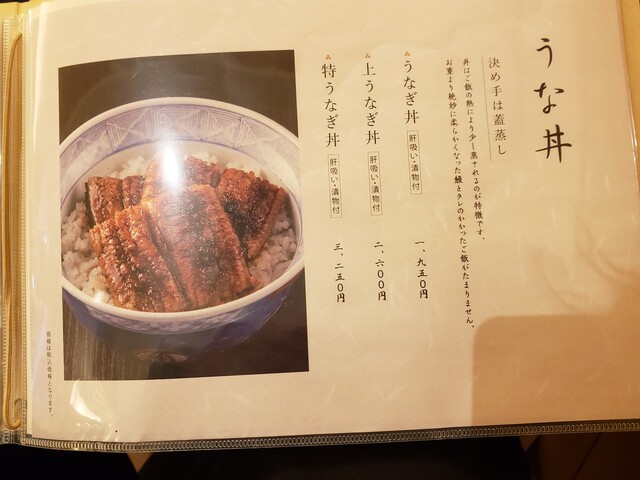 うな丼
決め手は蓋蒸し
丼はご飯の熱により少し蒸されるのが特徴です。
お重より絶妙に柔らかくなった鰻とタレのかかったご飯がたまりません。
うなぎ丼 肝吸い・漬物付 一、九五〇円
上うなぎ丼 肝吸い・漬物付 二、六〇〇円
特うなぎ丼 肝吸い・漬物付 三、二五〇円
価格は税込価格となります。